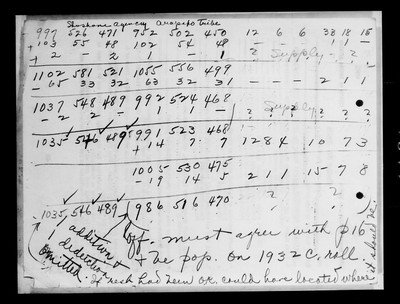 Shoshone agency Arapaho tribe
997 526 471 952 502 450 12 6 6 38 18 15
+103 55 48 102 54 48 1 1 -
+2 - 2 1 - 1 ? Supply - ?
1102 581 521 1055 556 499
-65 33 32 63 32 31 - - - 2 1 1
1037 548 489 992 524 468 Supply
-2 2 - 1 1 - ? ? ? ? ? ?
1035 546 489 991 523 468
+14 7 7 12 8 4 10 7 3
1005 530 475
-19 14 5 2 1 1 15 7 8
? ?
1035 546 489 986 516 470
addition & deduction omitted
off. must agree with p16
+ be pop. on 1932 C. roll.
If resh had been or. could have located where it should be.